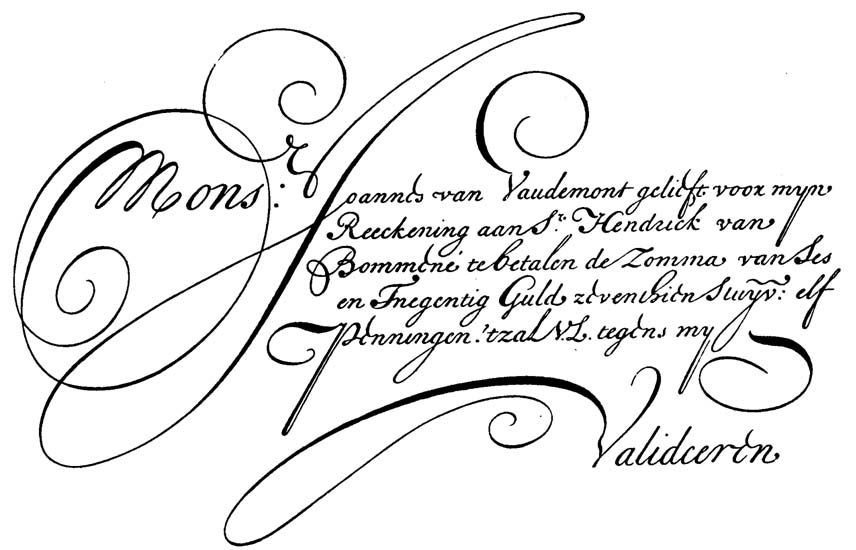 Mons:r Joannes van Vaudemont gelieft voor myn
Reeckening aan Sr. Hendrick van
Bommene te betalen de Zomma van Ses
en Tnegentig Guld zeventhien Stuyv: elf
Penningen. 'tzal V.L. tegens my
Valideeren